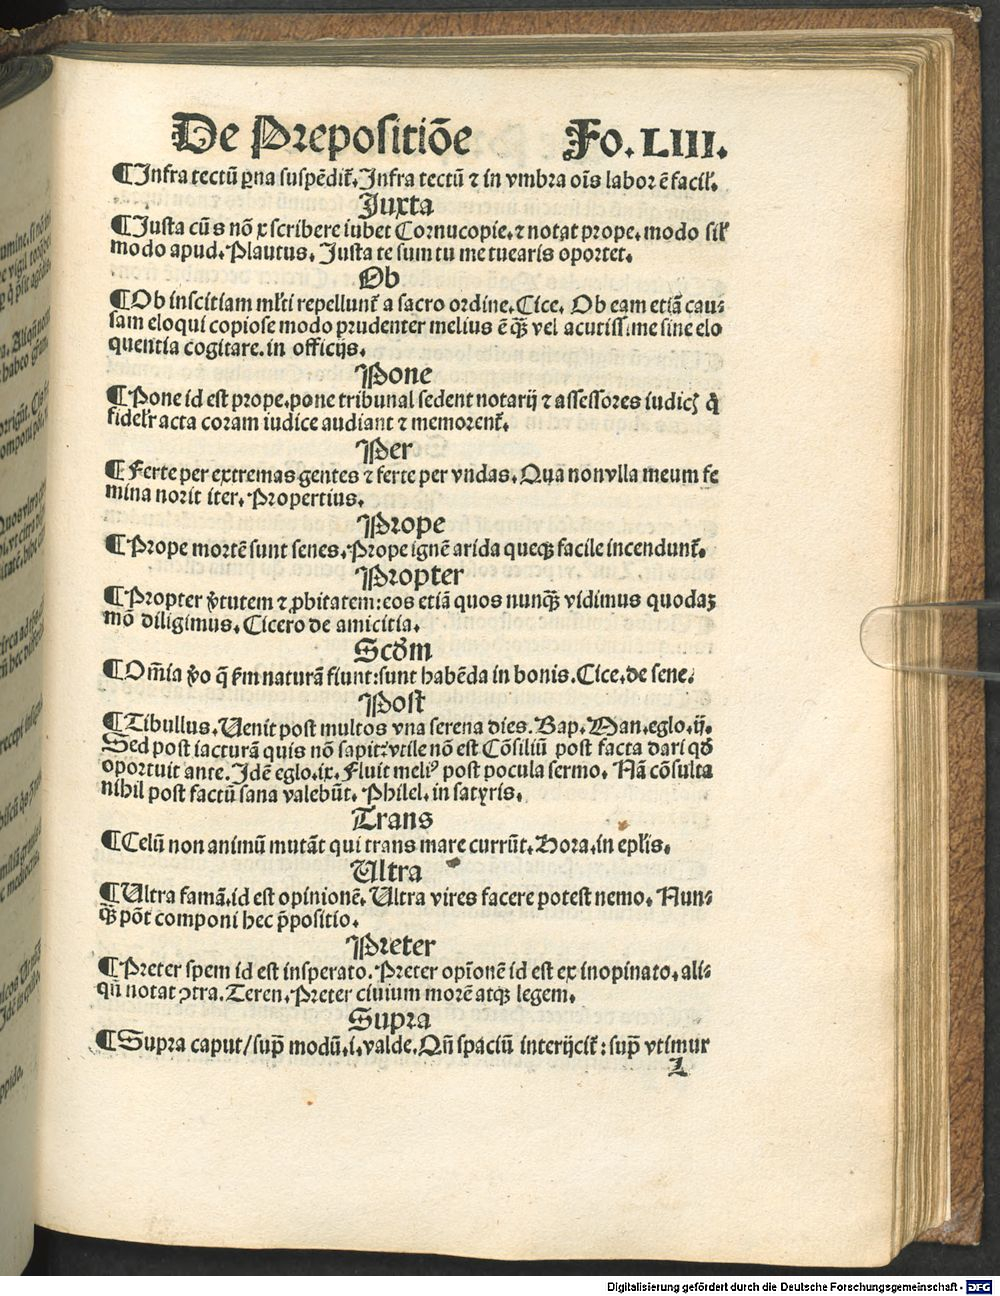 De Prepositiõe Fo. LIII.
¶ Infra tectũ ꝑna suspẽdit̃. Infra tectũ ⁊ in vmbra oĩs labor ẽ facil̃.
Iuxta
¶ Iusta cũ s nõ x scribere iubet Cornucopie. ⁊ notat prope. modo sil̃
modo apud. Plautus. Iusta te sum tu me tuearis oportet.
Ob
¶ Ob inscitiam ml̃ti repellunt̃ a sacro ordine. Cice. Ob eam etiã cau⸗
sam eloqui copiose modo prudenter melius ẽ q̃ꝫ vel acutissime sine elo
quentia cogitare. in officijs.
Pone
¶ Pone id est prope. pone tribunal sedent notarij ⁊ assessores iudic̃ q̃
fidelr̃ acta coram iudice audiant ⁊ memorent̃.
Per
¶ Ferte per extremas gentes ⁊ ferte per vndas. Qua non vlla meum fe
mina norit iter. Propertius.
Prope
¶ Prope mortẽ sunt senes. Prope ignẽ arida queqꝫ facile incendunt̃.
Propter
¶ Propter ṽtutem ⁊ ꝓbitatem: eos etiã quos nunq̃ꝫ vidimus quodaꝫ
mõ diligimus. Cicero de amicitia.
Scðm
¶ Om̃ia ṽo q̃ ẜm naturã fiunt: sunt habẽda in bonis. Cice. de sene.
Post
¶ Tibullus. Uenit post multos vna serena dies. Bap. Man. eglo. ij.
Sed post iacturã quis nõ sapit: vtile nõ est Cõsiliũ post facta dari qð
oportuit ante. Idẽ eglo. ix. Fluit meliꝰ post pocula sermo. Nã cõsulta
nihil post factũ sana valebũt. Philel. in satyris.
Trans
¶ Celũ non animũ mutãt qui trans mare currũt. Hora. in epl̃is.
Ultra
¶ Ultra famã. id est opinionẽ. Ultra vires facere potest nemo. Nun⸗
q̃ꝫ põt componi hec p̃positio.
Preter
¶ Preter spem id est insperato. Preter opĩonẽ id est ex inopinato. ali⸗
qñ notat ꝯtra. Teren. Preter ciuium morẽ atqꝫ legem.
Supra
¶ Supra caput / sup̃ modũ. i. valde. Qñ spaciũ interijcit̃: sup̃ vtimur
Digitalisierung gefördert durch die Deutsche Forschungsgemeinschaft - DFG